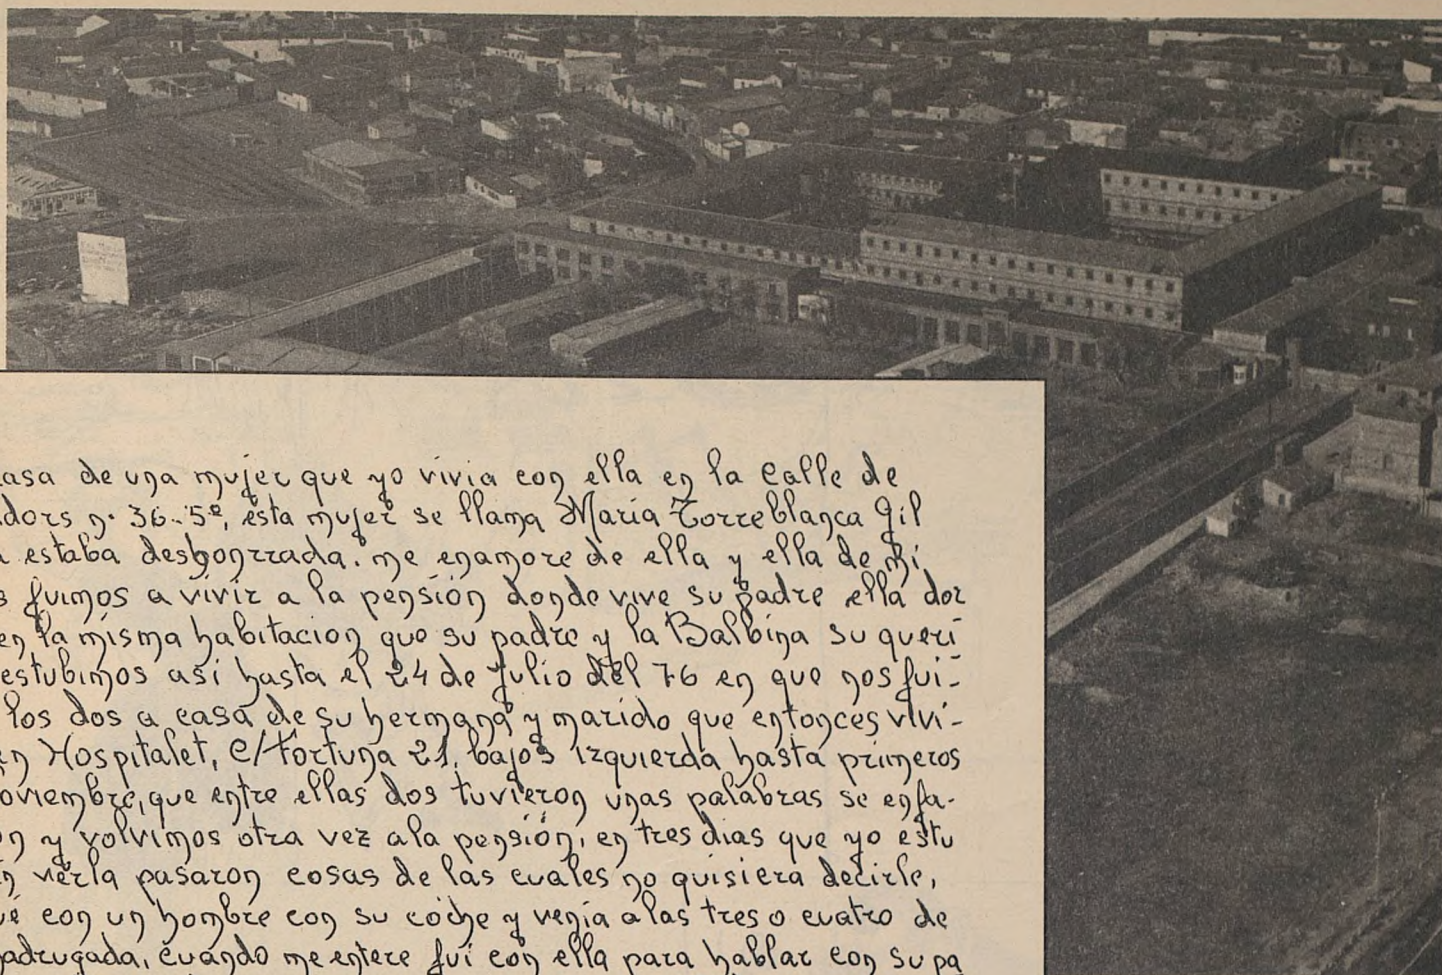 casa de una mujer que yo vivia con ella en la calle de
dors nº 36-5º, esta mujer se llama María Torreblanca Gil
estaba deshonrrada. me enamore de ella y ella de mi,
s fuimos a vivir a la pensión donde vive su padre ella dor
en la misma habitacion que su padre y la Balbina su queri
estubimos así hasta el 24 de Julio del 76 en que nos fui-
los dos a casa de su hermana y marido que entonces vivi-
en Hospitalet, C/ Fortuna 21, bajos izquierda hasta primeros
oviembre, que entre ellas dos tuvieron unas palabras se enfa-
on y volvimos otra vez a la pensión, en tres dias que yo estu
n verla pasaron cosas de las cuales no quisiera decirle,
ué con un hombre con su coche y venía a las tres o cuatro de
adrugada, cuando me entere fui con ella para hablar con su pa